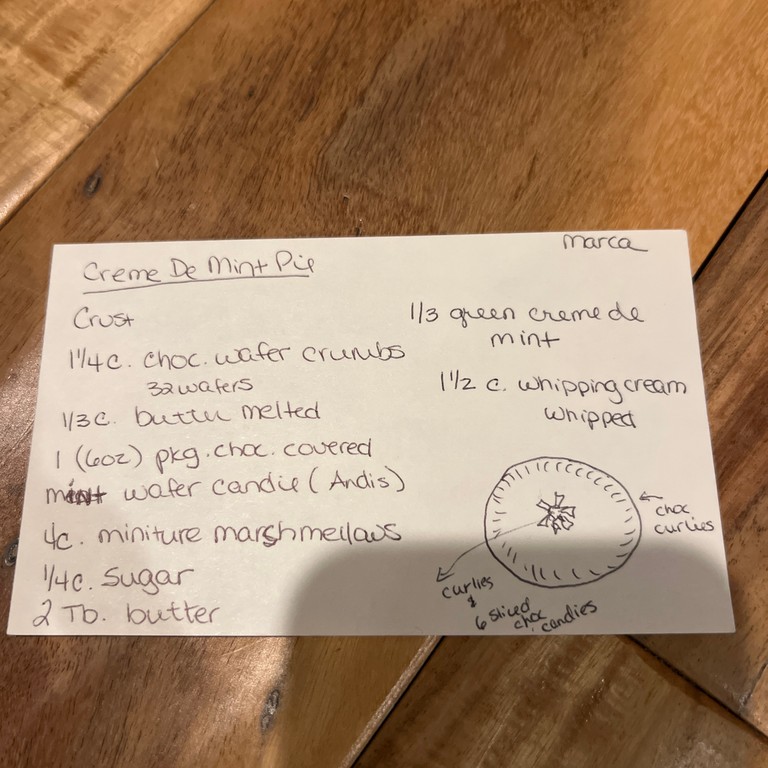 marca
Creme De Mint Pie
Crust
1 1/4 c. choc. wafer crumbs
32 wafers
1/3 c. butter melted
1 (6oz) pkg. choc. covered
mint wafer candie (Andis)
4c. miniture marshmellows
1/4c. sugar
2 Tb. butter
1/3 green creme de
mint
1 1/2 c. whipping cream
whipped
choc
curlies
curlies
&
6 sliced
choc. candies